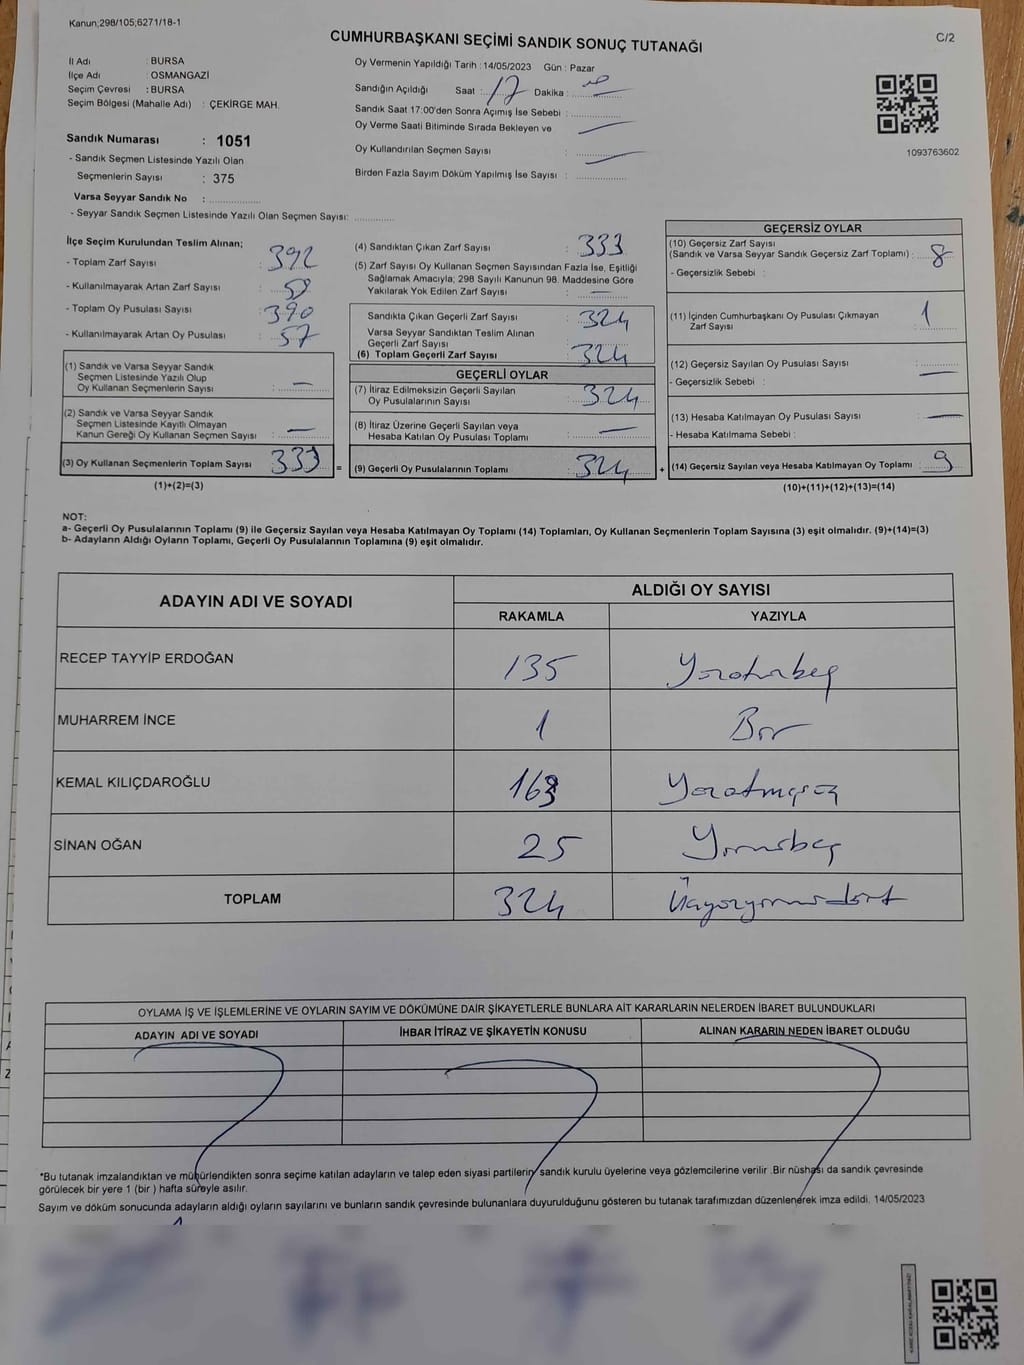 Kanun;298/105;6271/18-1
CUMHURBAŞKANI SEÇİMİ SANDIK SONUÇ TUTANAĞI
C/2
İl Adı : BURSA
İlçe Adı : OSMANGAZİ
Seçim Çevresi : BURSA
Seçim Bölgesi (Mahalle Adı) : ÇEKİRGE MAH.
Sandık Numarası : 1051
- Sandık Seçmen Listesinde Yazılı Olan
Seçmenlerin Sayısı : 375
Varsa Seyyar Sandık No : ..................
- Seyyar Sandık Seçmen Listesinde Yazılı Olan Seçmen Sayısı: ..............
Oy Vermenin Yapıldığı Tarih : 14/05/2023 Gün : Pazar
Sandığın Açıldığı Saat :..17.. Dakika :..............
Sandık Saat 17:00'den Sonra Açımış İse Sebebi : ..............
Oy Verme Saati Bitiminde Sırada Bekleyen ve
Oy Kullandırılan Seçmen Sayısı : ..............
Birden Fazla Sayım Döküm Yapılmış İse Sayısı : ..............
1093763602
İlçe Seçim Kurulundan Teslim Alınan;
- Toplam Zarf Sayısı : 392
- Kullanılmayarak Artan Zarf Sayısı : 59
- Toplam Oy Pusulası Sayısı : 390
- Kullanılmayarak Artan Oy Pusulası : 57
(1) Sandık ve Varsa Seyyar Sandık
Seçmen Listesinde Yazılı Olup
Oy Kullanan Seçmenlerin Sayısı : —
(2) Sandık ve Varsa Seyyar Sandık
Seçmen Listesinde Kayıtlı Olmayan
Kanun Gereği Oy Kullanan Seçmen Sayısı : —
(3) Oy Kullanan Seçmenlerin Toplam Sayısı 333 =
(1)+(2)=(3)
(4) Sandıktan Çıkan Zarf Sayısı : 333
(5) Zarf Sayısı Oy Kullanan Seçmen Sayısından Fazla İse, Eşitliği
Sağlamak Amacıyla; 298 Sayılı Kanunun 98. Maddesine Göre
Yakılarak Yok Edilen Zarf Sayısı : —
Sandıkta Çıkan Geçerli Zarf Sayısı : 324
Varsa Seyyar Sandıktan Teslim Alınan
Geçerli Zarf Sayısı :
(6) Toplam Geçerli Zarf Sayısı : 324
GEÇERLİ OYLAR
(7) İtiraz Edilmeksizin Geçerli Sayılan
Oy Pusulalarının Sayısı : 324
(8) İtiraz Üzerine Geçerli Sayılan veya
Hesaba Katılan Oy Pusulası Toplamı : —
(9) Geçerli Oy Pusulalarının Toplamı : 324 +
GEÇERSİZ OYLAR
(10) Geçersiz Zarf Sayısı
(Sandık ve Varsa Seyyar Sandık Geçersiz Zarf Toplamı) : 8
- Geçersizlik Sebebi :
(11) İçinden Cumhurbaşkanı Oy Pusulası Çıkmayan
Zarf Sayısı : 1
(12) Geçersiz Sayılan Oy Pusulası Sayısı : —
- Geçersizlik Sebebi :
(13) Hesaba Katılmayan Oy Pusulası Sayısı : —
- Hesaba Katılmama Sebebi :
(14) Geçersiz Sayılan veya Hesaba Katılmayan Oy Toplamı : 9
(10)+(11)+(12)+(13)=(14)
NOT:
a- Geçerli Oy Pusulalarının Toplamı (9) ile Geçersiz Sayılan veya Hesaba Katılmayan Oy Toplamı (14) Toplamları, Oy Kullanan Seçmenlerin Toplam Sayısına (3) eşit olmalıdır. (9)+(14)=(3)
b- Adayların Aldığı Oyların Toplamı, Geçerli Oy Pusulalarının Toplamına (9) eşit olmalıdır.
ADAYIN ADI VE SOYADI ALDIĞI OY SAYISI
RAKAMLA YAZIYLA
RECEP TAYYİP ERDOĞAN 135 Yüzotuzbeş
MUHARREM İNCE 1 Bir
KEMAL KILIÇDAROĞLU 163 Yüzatmışüç
SİNAN OĞAN 25 Yirmibeş
TOPLAM 324 Üçyüzyirmidört
OYLAMA İŞ VE İŞLEMLERİNE VE OYLARIN SAYIM VE DÖKÜMÜNE DAİR ŞİKAYETLERLE BUNLARA AİT KARARLARIN NELERDEN İBARET BULUNDUKLARI
ADAYIN ADI VE SOYADI İHBAR İTİRAZ VE ŞİKAYETİN KONUSU ALINAN KARARIN NEDEN İBARET OLDUĞU
*Bu tutanak imzalandıktan ve mühürlendikten sonra seçime katılan adayların ve talep eden siyasi partilerin sandık kurulu üyelerine veya gözlemcilerine verilir .Bir nüshası da sandık çevresinde
görülecek bir yere 1 (bir ) hafta süreyle asılır.
Sayım ve döküm sonucunda adayların aldığı oyların sayılarını ve bunların sandık çevresinde bulunanlara duyurulduğunu gösteren bu tutanak tarafımızdan düzenlenerek imza edildi. 14/05/2023